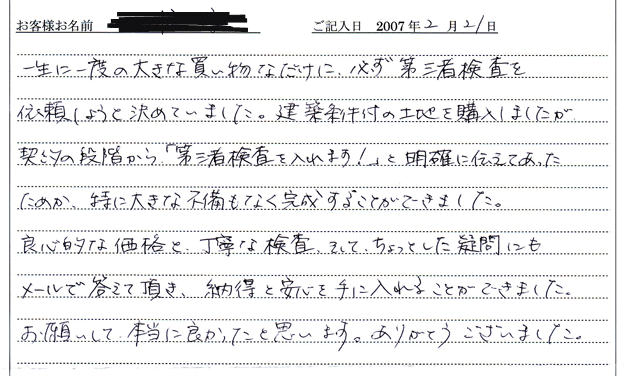 お客様お名前 ご記入日 2007年2月21日
一生に一度の大きな買い物なだけに、必ず第三者検査を
依頼しようと決めていました。建築条件付の土地を購入しましたが
契約の段階から「第三者検査を入れます!」と明確に伝えてあった
ためか、特に大きな不備もなく完成することができました。
良心的な価格と、丁寧な検査、そして、ちょっとした疑問にも
メールで答えて頂き、納得と安心を手に入れることができました。
お願いして本当に良かったと思います。ありがとうございました。